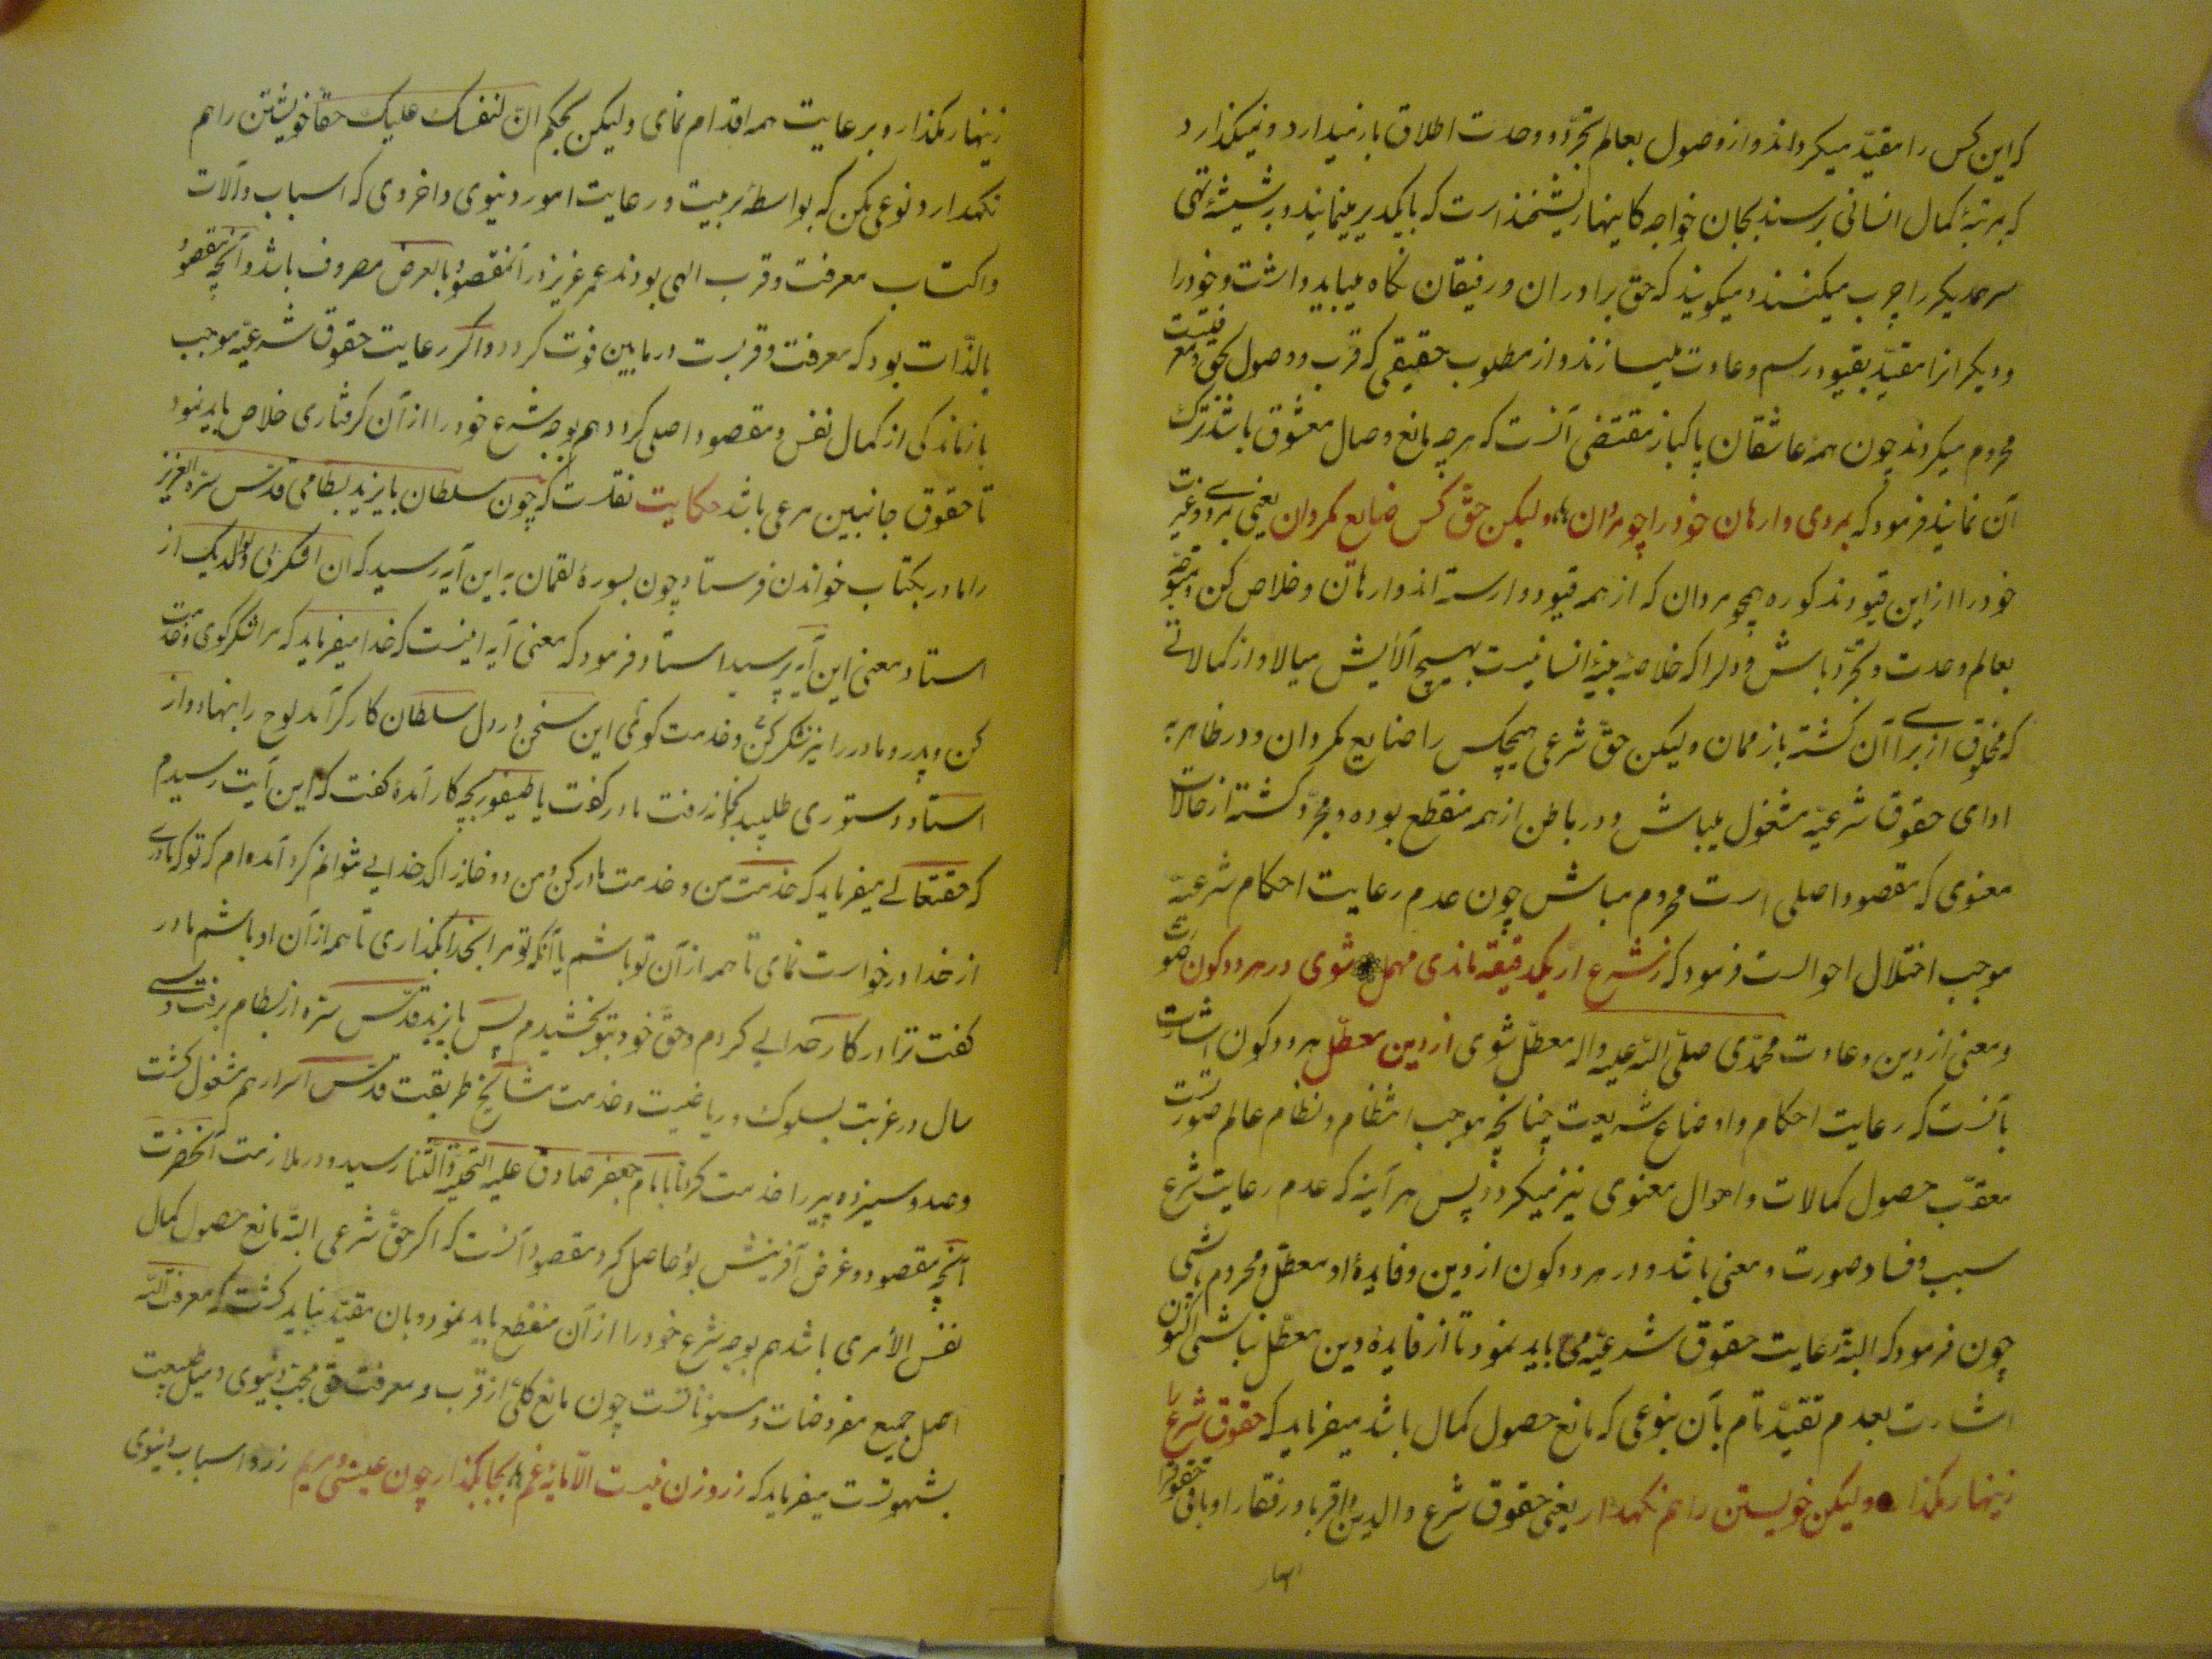 که این کس را مقیّد میکرداند و از وصول بعالم تجرّد و وحدت اطلاق باز میدارد و نمیکذارد
که بمرتبهٔ کمال انسانی برسند بجان خواجه کاینها ریشخندست که با یکدیکر مینمایند و بر شیشهٔ تهی
سر همدیکر را چرب میکنند و میکویند که حق برادران و رفیقان نکاه میباید داشت و خود را
و دیکرانرا مقیّد بقیود رسم و عادت میسازند و از مطلوب حقیقی که قرب و وصول بحق و معرفتست
محروم میکردند چون همهٔ عاشقان پاکباز مقتضی آنست که هر چه مانع وصال معشوق باشد ترک
آن نمایند فرمود که بمردی وارهان خود را چو مردان ولیکن حقّ کس ضایع مکردان یعنی بمردی و غیرت
خود را از این قیود مذکوره همچو مردان که از همه قیود وارسته اند وارهان و خلاص کن و متوجّه
بعالم وحدت و تجرّد باش و دلرا که خلاصهٔ بنیهٔ انسانیست بهیچ آلایش میالا و از کمالاتی
که مخلوق از برای آن کشتهٔ باز ممان ولیکن حقّ شرعی هیچکس را ضایع مکردان و در ظاهر به
ادای حقوق شرعیّه مشغول میباش و در باطن از همه منقطع بوده و مجرّد کشته از حالات
معنوی که مقصود اصلی است محروم مباش چون عدم رعایت احکام شرعیّه
موجب اختلال احوالست فرمود که ز شرع ار یکدقیقه ماندی مهمل شوی در هر دو کون
و معنی از دین و عادت محمّدی صلّی الله علیه و اله معطّل شوی از دین معطل هر دو کون اشارت
بآنست که رعایت احکام و اوضاع شریعت چنانچه موجب انتظام و نظام عالم صورتست
معقّب حصول کمالات و احوال معنوی نیز میکردد پس هر آینه که عدم رعایت شرع
سبب فساد صورت و معنی باشد و در هر دو کون از دین و فایدهٔ او معطّل و محروم باشی
چون فرمود که البتّه رعایت حقوق شرعیّه می باید نمود تا از فایدهٔ دین معطّل نباشی اکنون
اشارت بعدم تقیّد تام بآن بنوعی که مانع حصول کمال باشد میفرماید که حقوق شرع را
زینهار مکذار ولیکن خویشتن را هم نکهدار یعنی حقوق شرع و والدین و اقربا و رفقا را و باقی حقوق را
زینهار مکذار و بر عایت همه اقدام نمای ولیکن بحکم انّ لنفسک علیک حقّا خویشتن را هم
نکهدار و نوعی مکن که بواسطهٔ تربیت و رعایت امور دنیوی و اخروی که اسباب و آلات
و اکتساب معرفت و قرب الهی بودند عمر عزیز در آنمقصود بالعرض مصروف باشد و آنچه مقصود
بالذّات بود که معرفت و قربست در مابین فوت کردد و اکر رعایت حقوق شرعیّه موجب
بازماندکی از کمال نفس و مقصود اصلی کردد هم بوجه شرع خود را از آن کرفتاری خلاص باید نمود
تا حقوق جانبین مرعی باشد حکایت نقلست که چون سلطان بایزید بسطامی قدّس سرّه العزیز
را مادر بکتاب خواندن فرستاد چون بسورهٔ لقمان به این آیه رسید که ان اشکر لی ولوالدیک از
استاد معنی این آیه پرسید استاد فرمود که معنی آیه اینست که خدا میفرماید که مرا شکر کوی و خدمت
کن و پدر و مادر را نیز شکر کن و خدمت کوئی این سخن در دل سلطان کارکر آمد لوح را بنهاد و از
استاد دستوری طلبید بخانه رفت مادر کفت یا طیفور بچه کار آمدهٔ کفت که به این آیت رسیدم
که حقتعالی میفرماید که خدمت من و خدمت مادر کن و من دو خانه را کدخدایی نتوانم کرد آمده ام که تو که مادری
از خدا درخواست نمای تا همه از آن تو باشم یا آنکه تو مرا بخدا بکذاری تا همه از آن او باشم مادر
کفت ترا در کار خدای کردم و حقّ خود بتو بخشیدم پس بایزید قدّس سرّه از بسطام برفت و سی
سال در غربت بسلوک و ریاضت و خدمت مشایخ طریقت قدّس اسرارهم مشغول کشت
و صد و سیزده پیر را خدمت کرد تا بامام جعفر صادق علیه التحیّة والثّنا رسید و در ملازمت آنحضرت
آنچه مقصود و غرض آفرینش بود حاصل کرد مقصود آنست که اکر حقّ شرعی البتّه مانع حصول کمال
نفس الأمری باشد هم بوجه شرع خود را از آن منقطع باید نمود و بان مقیّد نباید کشت که معرفت الله
اصل جمیع مفروضات و مسنوناتست چون مانع کلّی از قرب و معرفت حق محبّت دنیوی و میل طبیعت
بشهوتست میفرماید که زر و زن نیست الّا مایهٔ غم بجا بکذار چون عیسی مریم زر و اسباب دنیوی